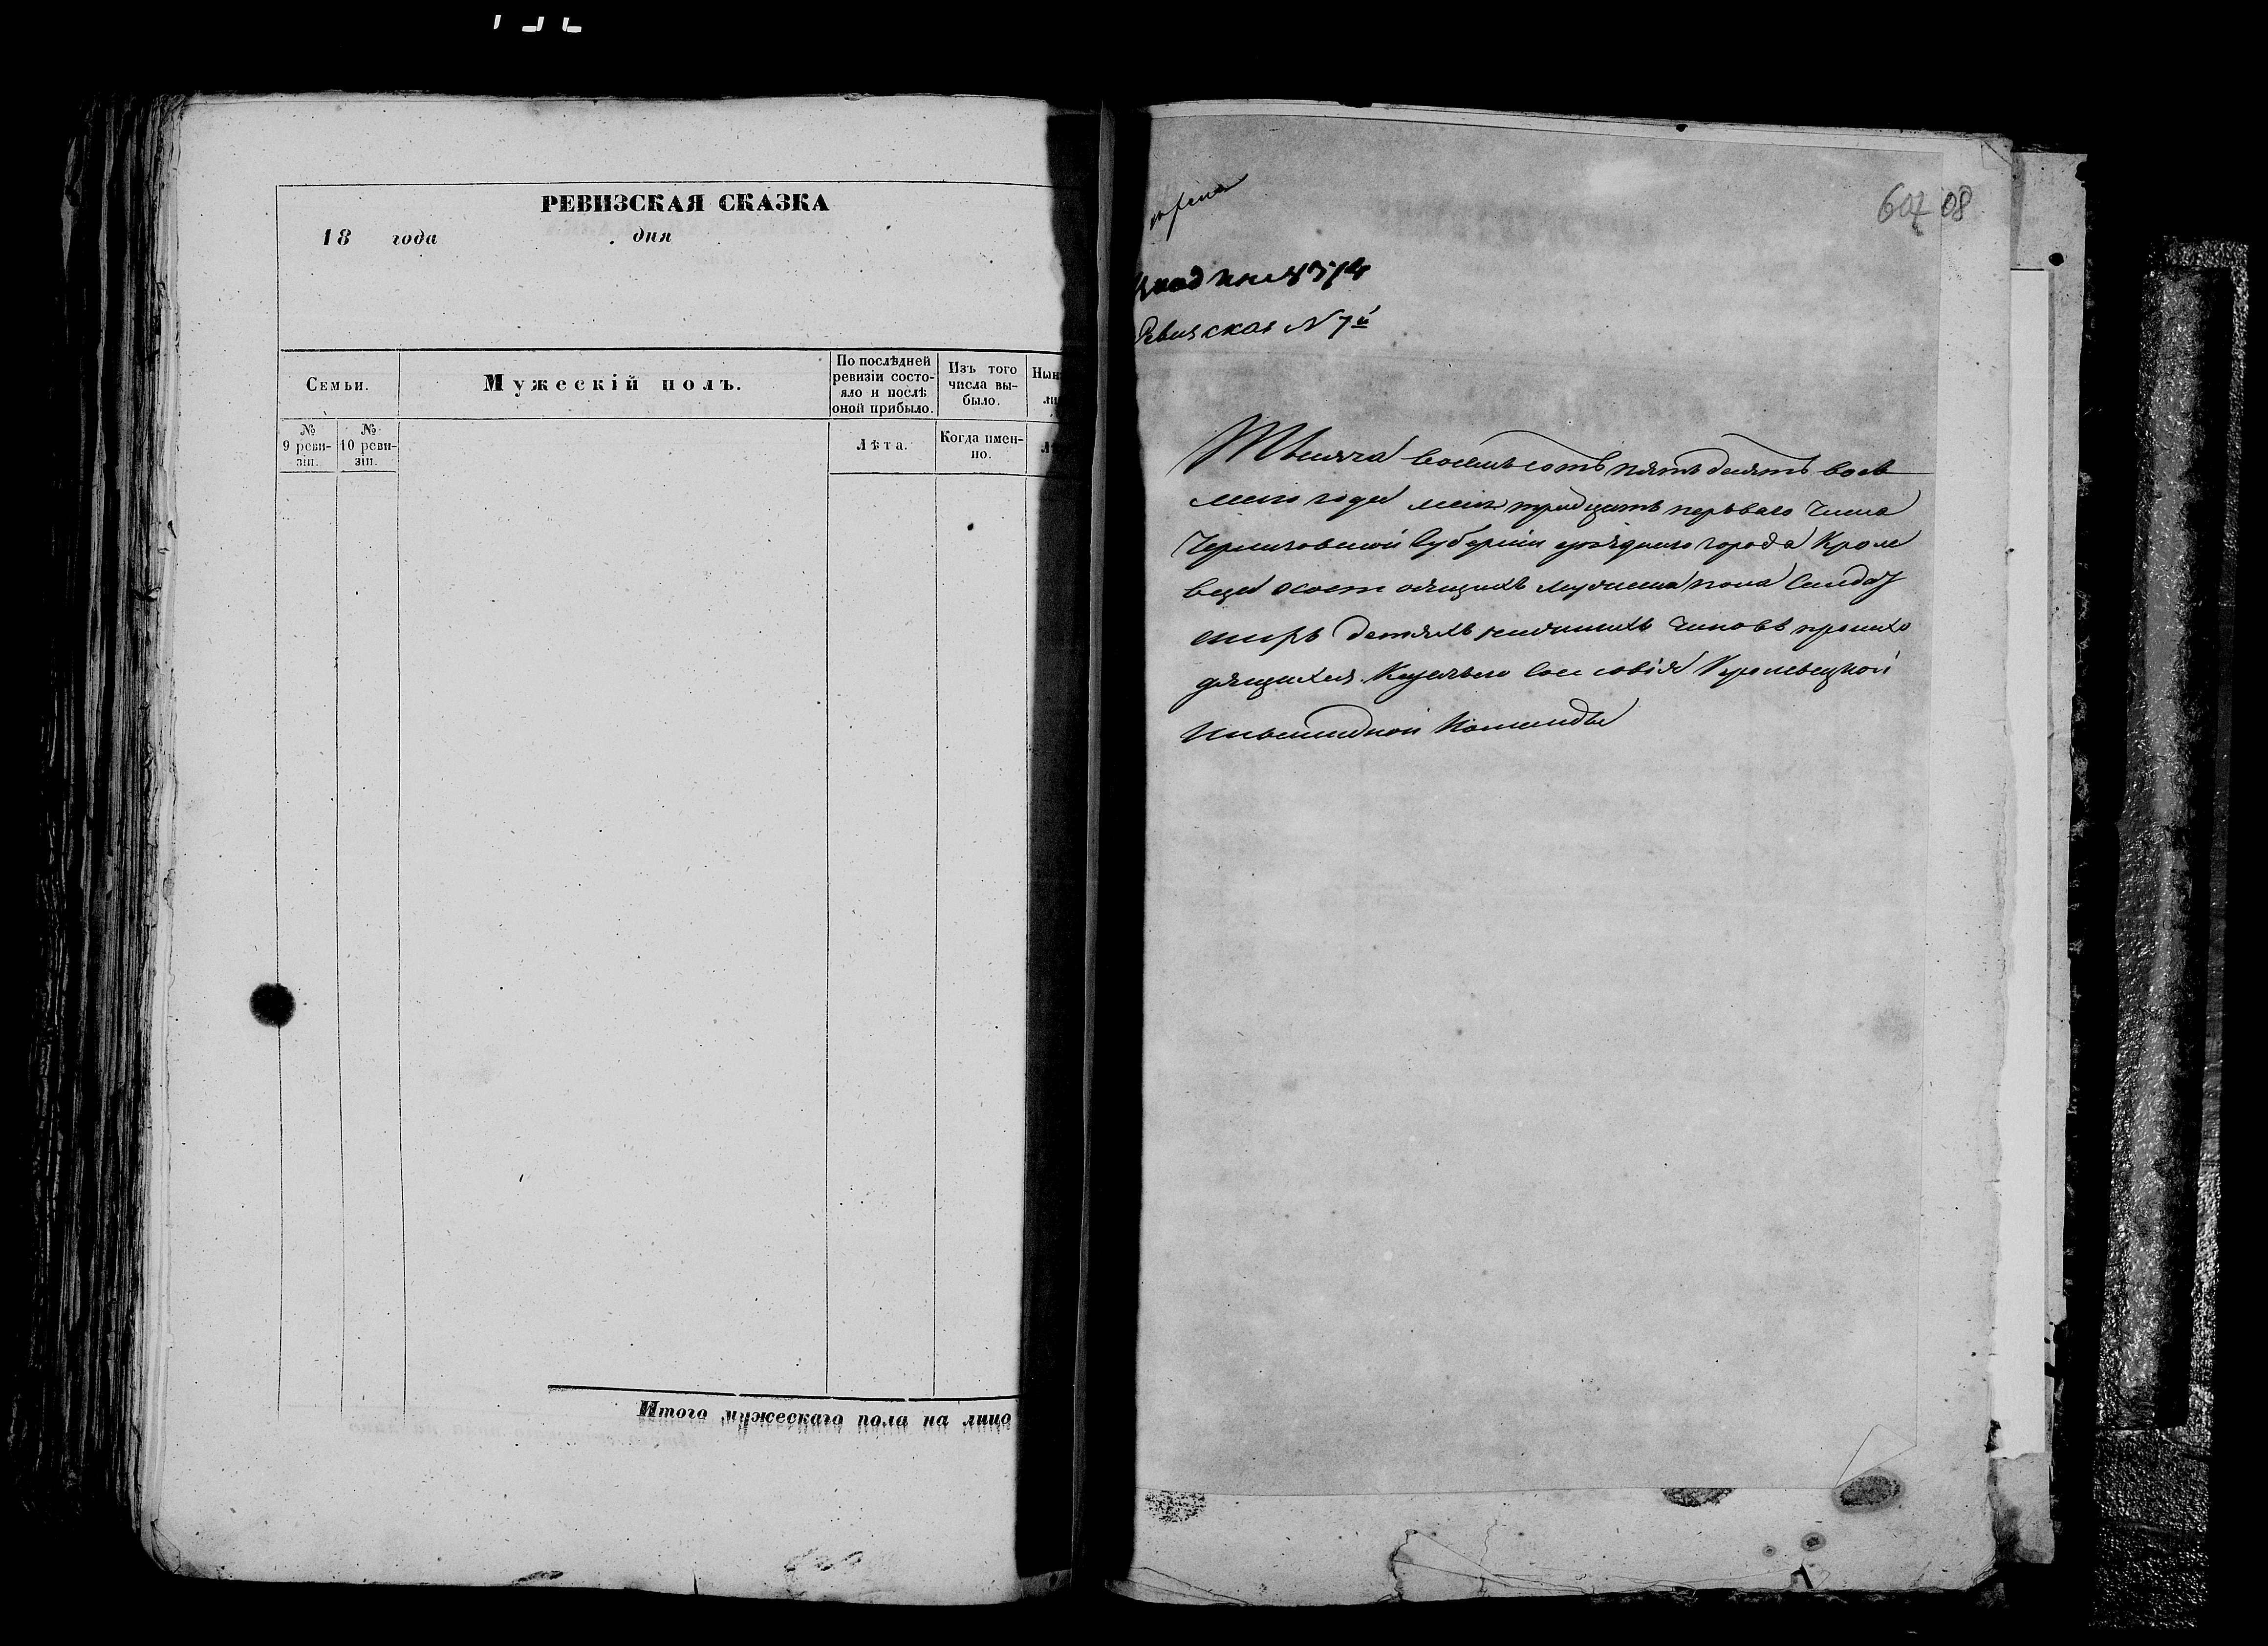 РЕВИЗСКАЯ СКАЗКА
18 года дня
Семьи.
Мужескій полъ.
По послѣдней ревизіи состо-
яло и послѣ
оной прибыло.
Изъ того
числа вы-
было.
№
9 реви-
зіи.
№
10 реви-
зіи.
Лѣта.
Когда имен-
но.
Итого мужескаго пола на лицо
607 08
Ревизская N 7й
Тысяча восемьсотъ пятьдесятъ вось
маго года мая тридцать перваго числа
Черниговской Губерніи уѣзднаго города Кроле
веца о состоящихъ мужеска пола Солдат
скихъ детяхъ нижнихъ чиновъ происхо
дящихъ сословія Кролевецкой
Инвалидной Команды